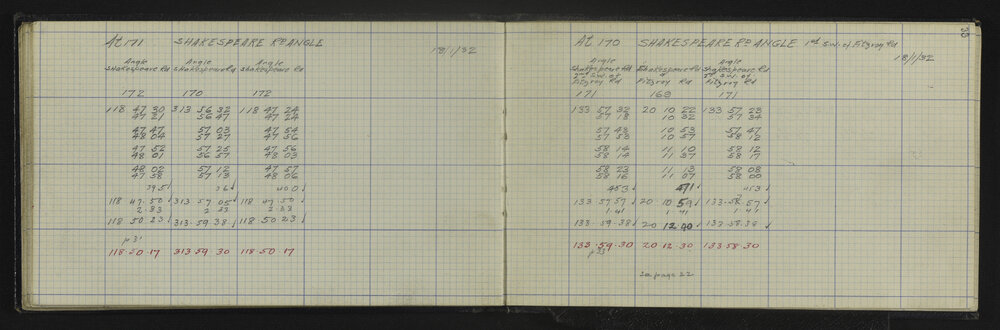 At 171 SHAKESPEARE RD ANGLE
18/1/32
Angle Angle Angle
Shakespeare Rd Shakespeare Rd Shakespeare Rd
172 170 172
118 47 30 313 56 32 118 47 24
47 21 56 47 47 24
47 47 57 03 47 54
48 04 57 27 47 56
47 52 57 25 47 56
48 01 56 57 48 03
48 02 57 12 47 57
47 38 57 13 48 06
395 36 400
118 47.50 313 57 05 118 47.50
2.33 2 33 2.33
118 50 23 313.59 38 118 50 23
p 31
118.50.17 313.59 30 118.50.17
33
At 170 SHAKESPEARE RD ANGLE 1st S.W. of Fitzroy Rd
18/1/32
Angle Angle
Shakespeare Rd Shakespeare Rd Shakespeare Rd
2nd S.W. of & 2nd S.W. of
Fitzroy Rd Fitzroy Rd Fitzroy Rd
171 169 171
133 57 32 20 10 22 133 57 23
57 18 10 32 57 34
57 43 10 53 57 47
57 53 10 57 58 12
58 14 11 10 58 12
58 14 11 37 58 17
58 23 11 13 58 08
58 16 11 07 58 00
453 471 453
133 57 57 20 10 59 133.58 57
1.41 1 41 1.41
133.59.38 20 12 40 133.58.38
133.59.30 20.12.30 133.58.30
p 33
See page 22